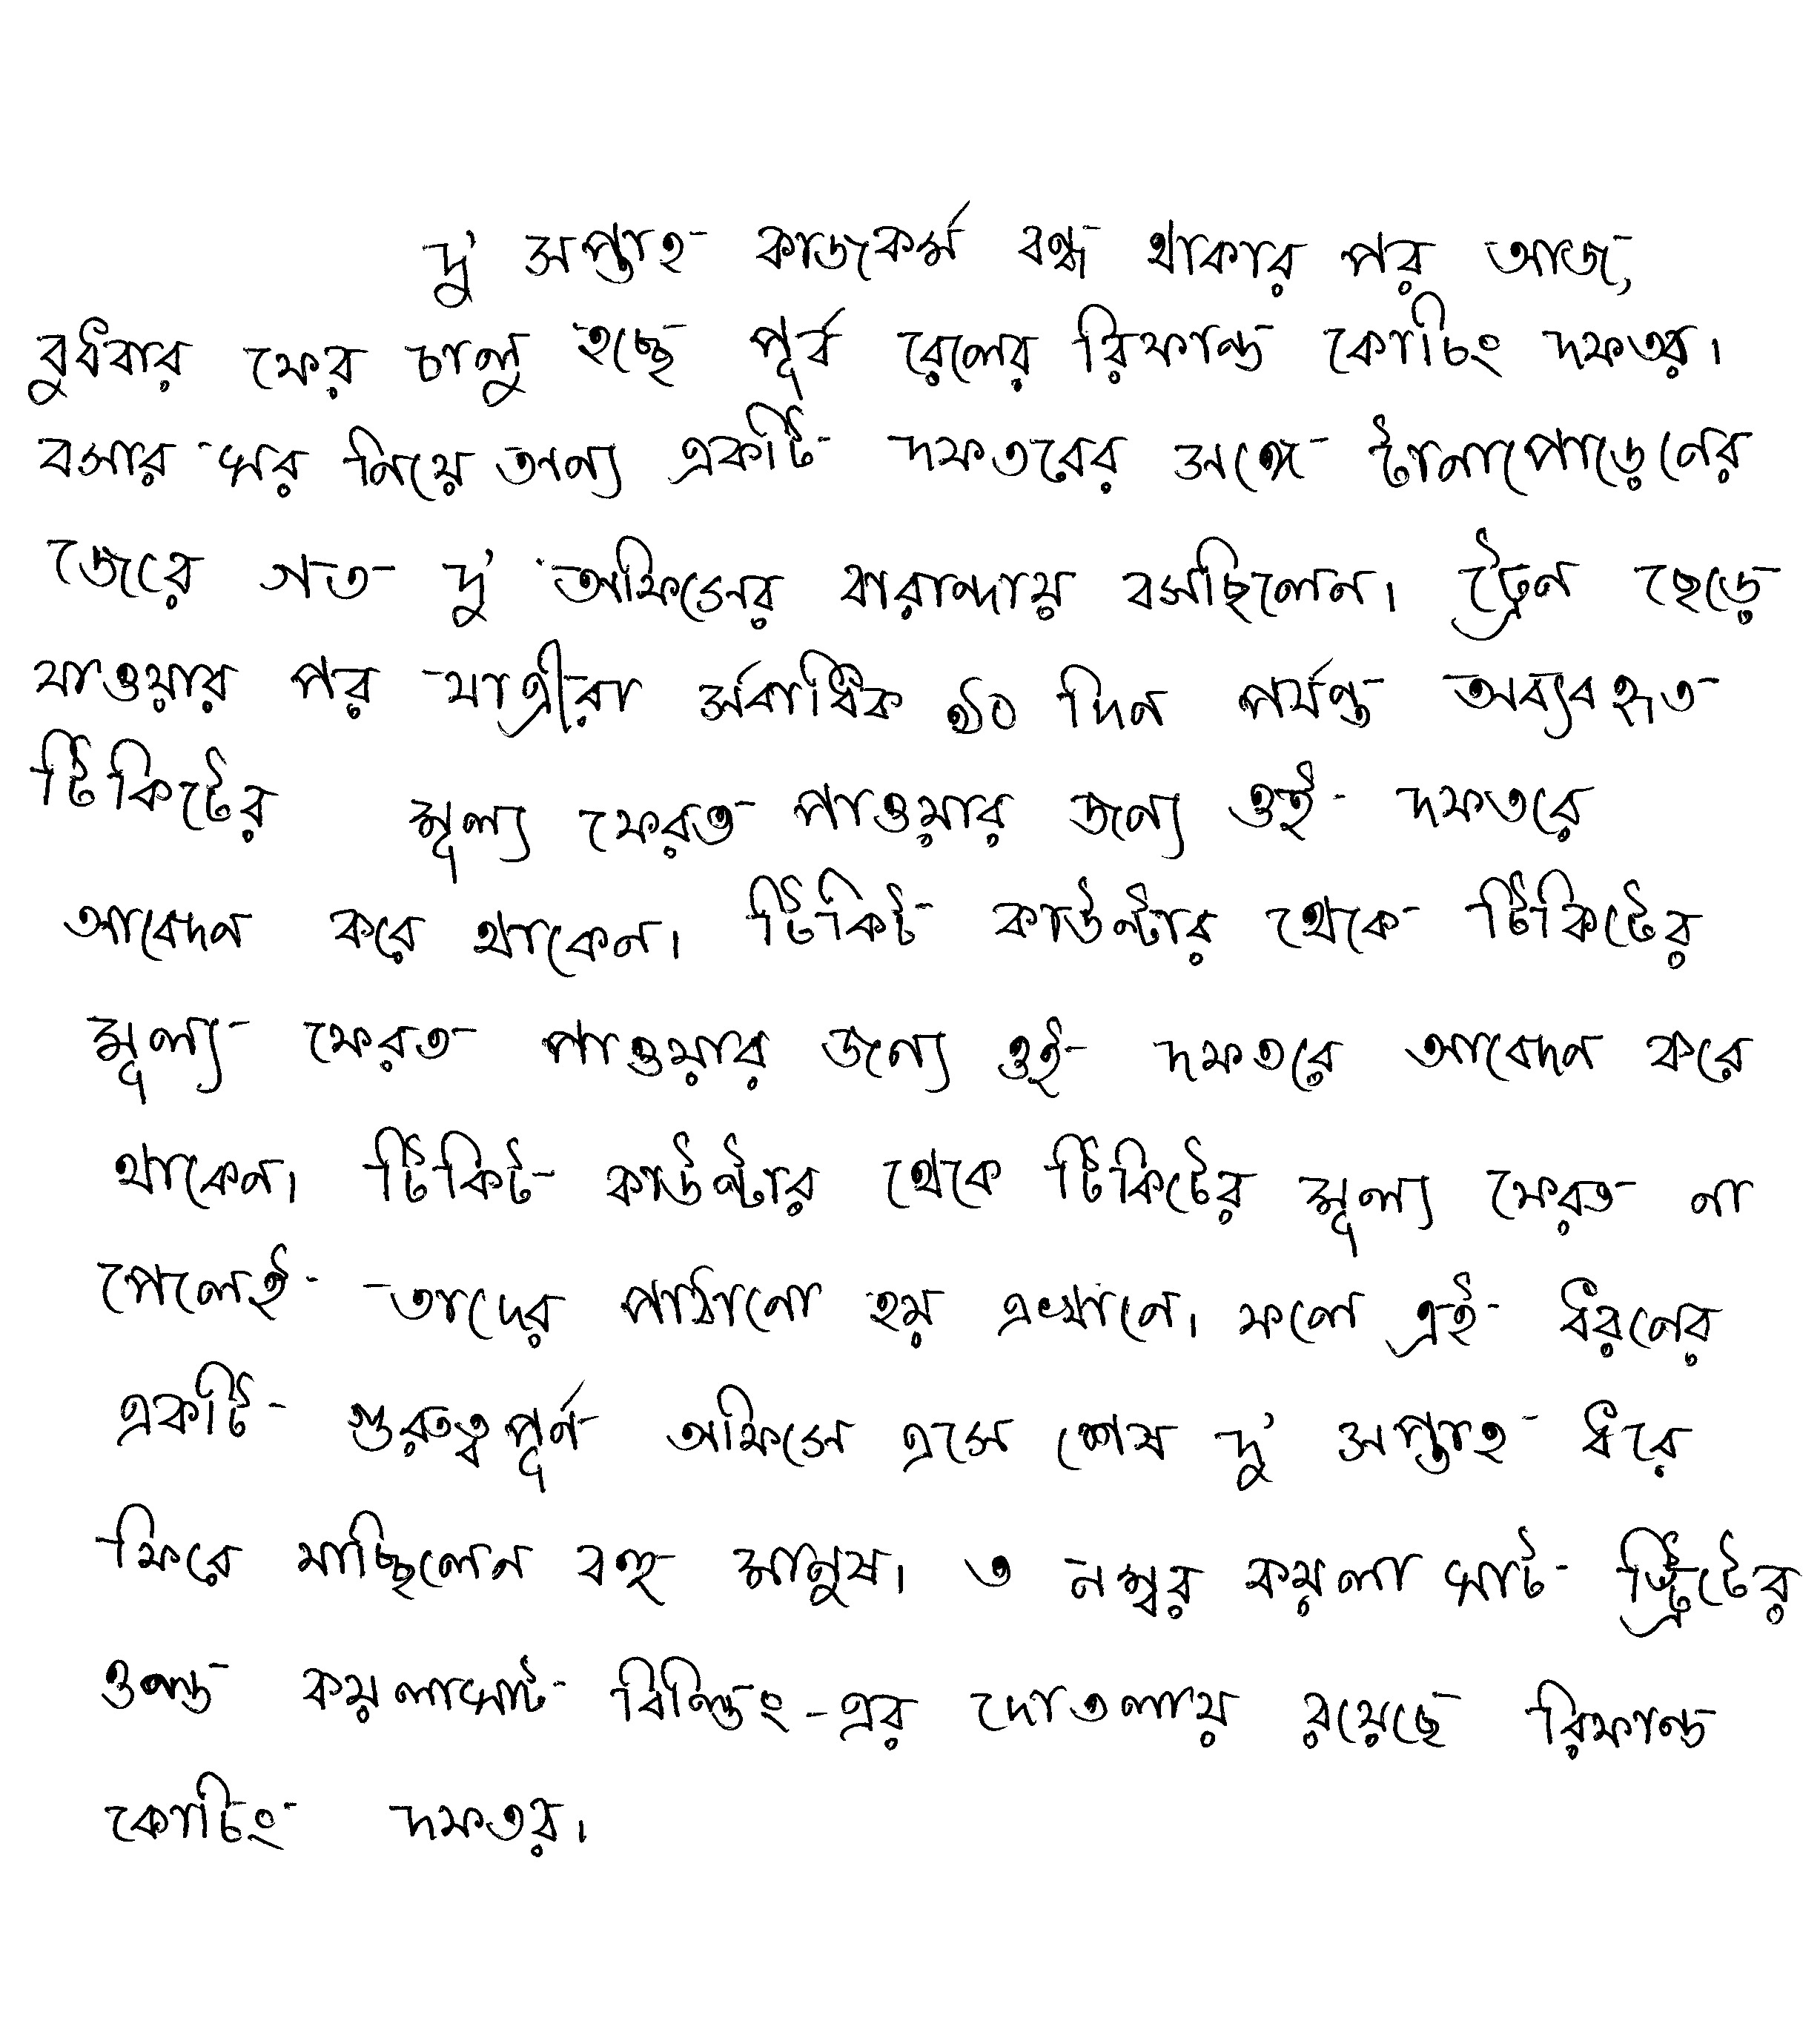 দু' সপ্তাহ কাজকর্ম বন্ধ থাকার পর আজ,
বুধবার ফের চালু হচ্ছে পূর্ব রেলের রিফান্ড কোচিং দফতর।
বসার ঘর নিয়ে অন্য একটি দফতরের সঙ্গে টানাপোড়েনের
জেরে গত দু' অফিসের বারান্দায় বসছিলেন। ট্রেন ছেড়ে
যাওয়ার পর যাত্রীরা সর্বাধিক ৯০ দিন পর্যন্ত অব্যবহৃত
টিকিটের মূল্য ফেরত পাওয়ার জন্য ওই দফতরে
আবেদন করে থাকেন। টিকিট কাউন্টার থেকে টিকিটের
মূল্য ফেরত পাওয়ার জন্য ওই দফতরে আবেদন করে
থাকেন। টিকিট কাউন্টার থেকে টিকিটের মূল্য ফেরত না
পেলেই তাদের পাঠানো হয় এখানে। ফলে এই ধরনের
একটি গুরুত্বপূর্ন অফিসে এসে শেষ দু' সপ্তাহ ধরে
ফিরে যাচ্ছিলেন বহু মানুষ। ৩ নম্বর কয়লা ঘাট স্ট্রিটের
ওল্ড কয়লাঘাট বিল্ডিং-এর দোতলায় রয়েছে রিফান্ড
কোচিং দফতর।